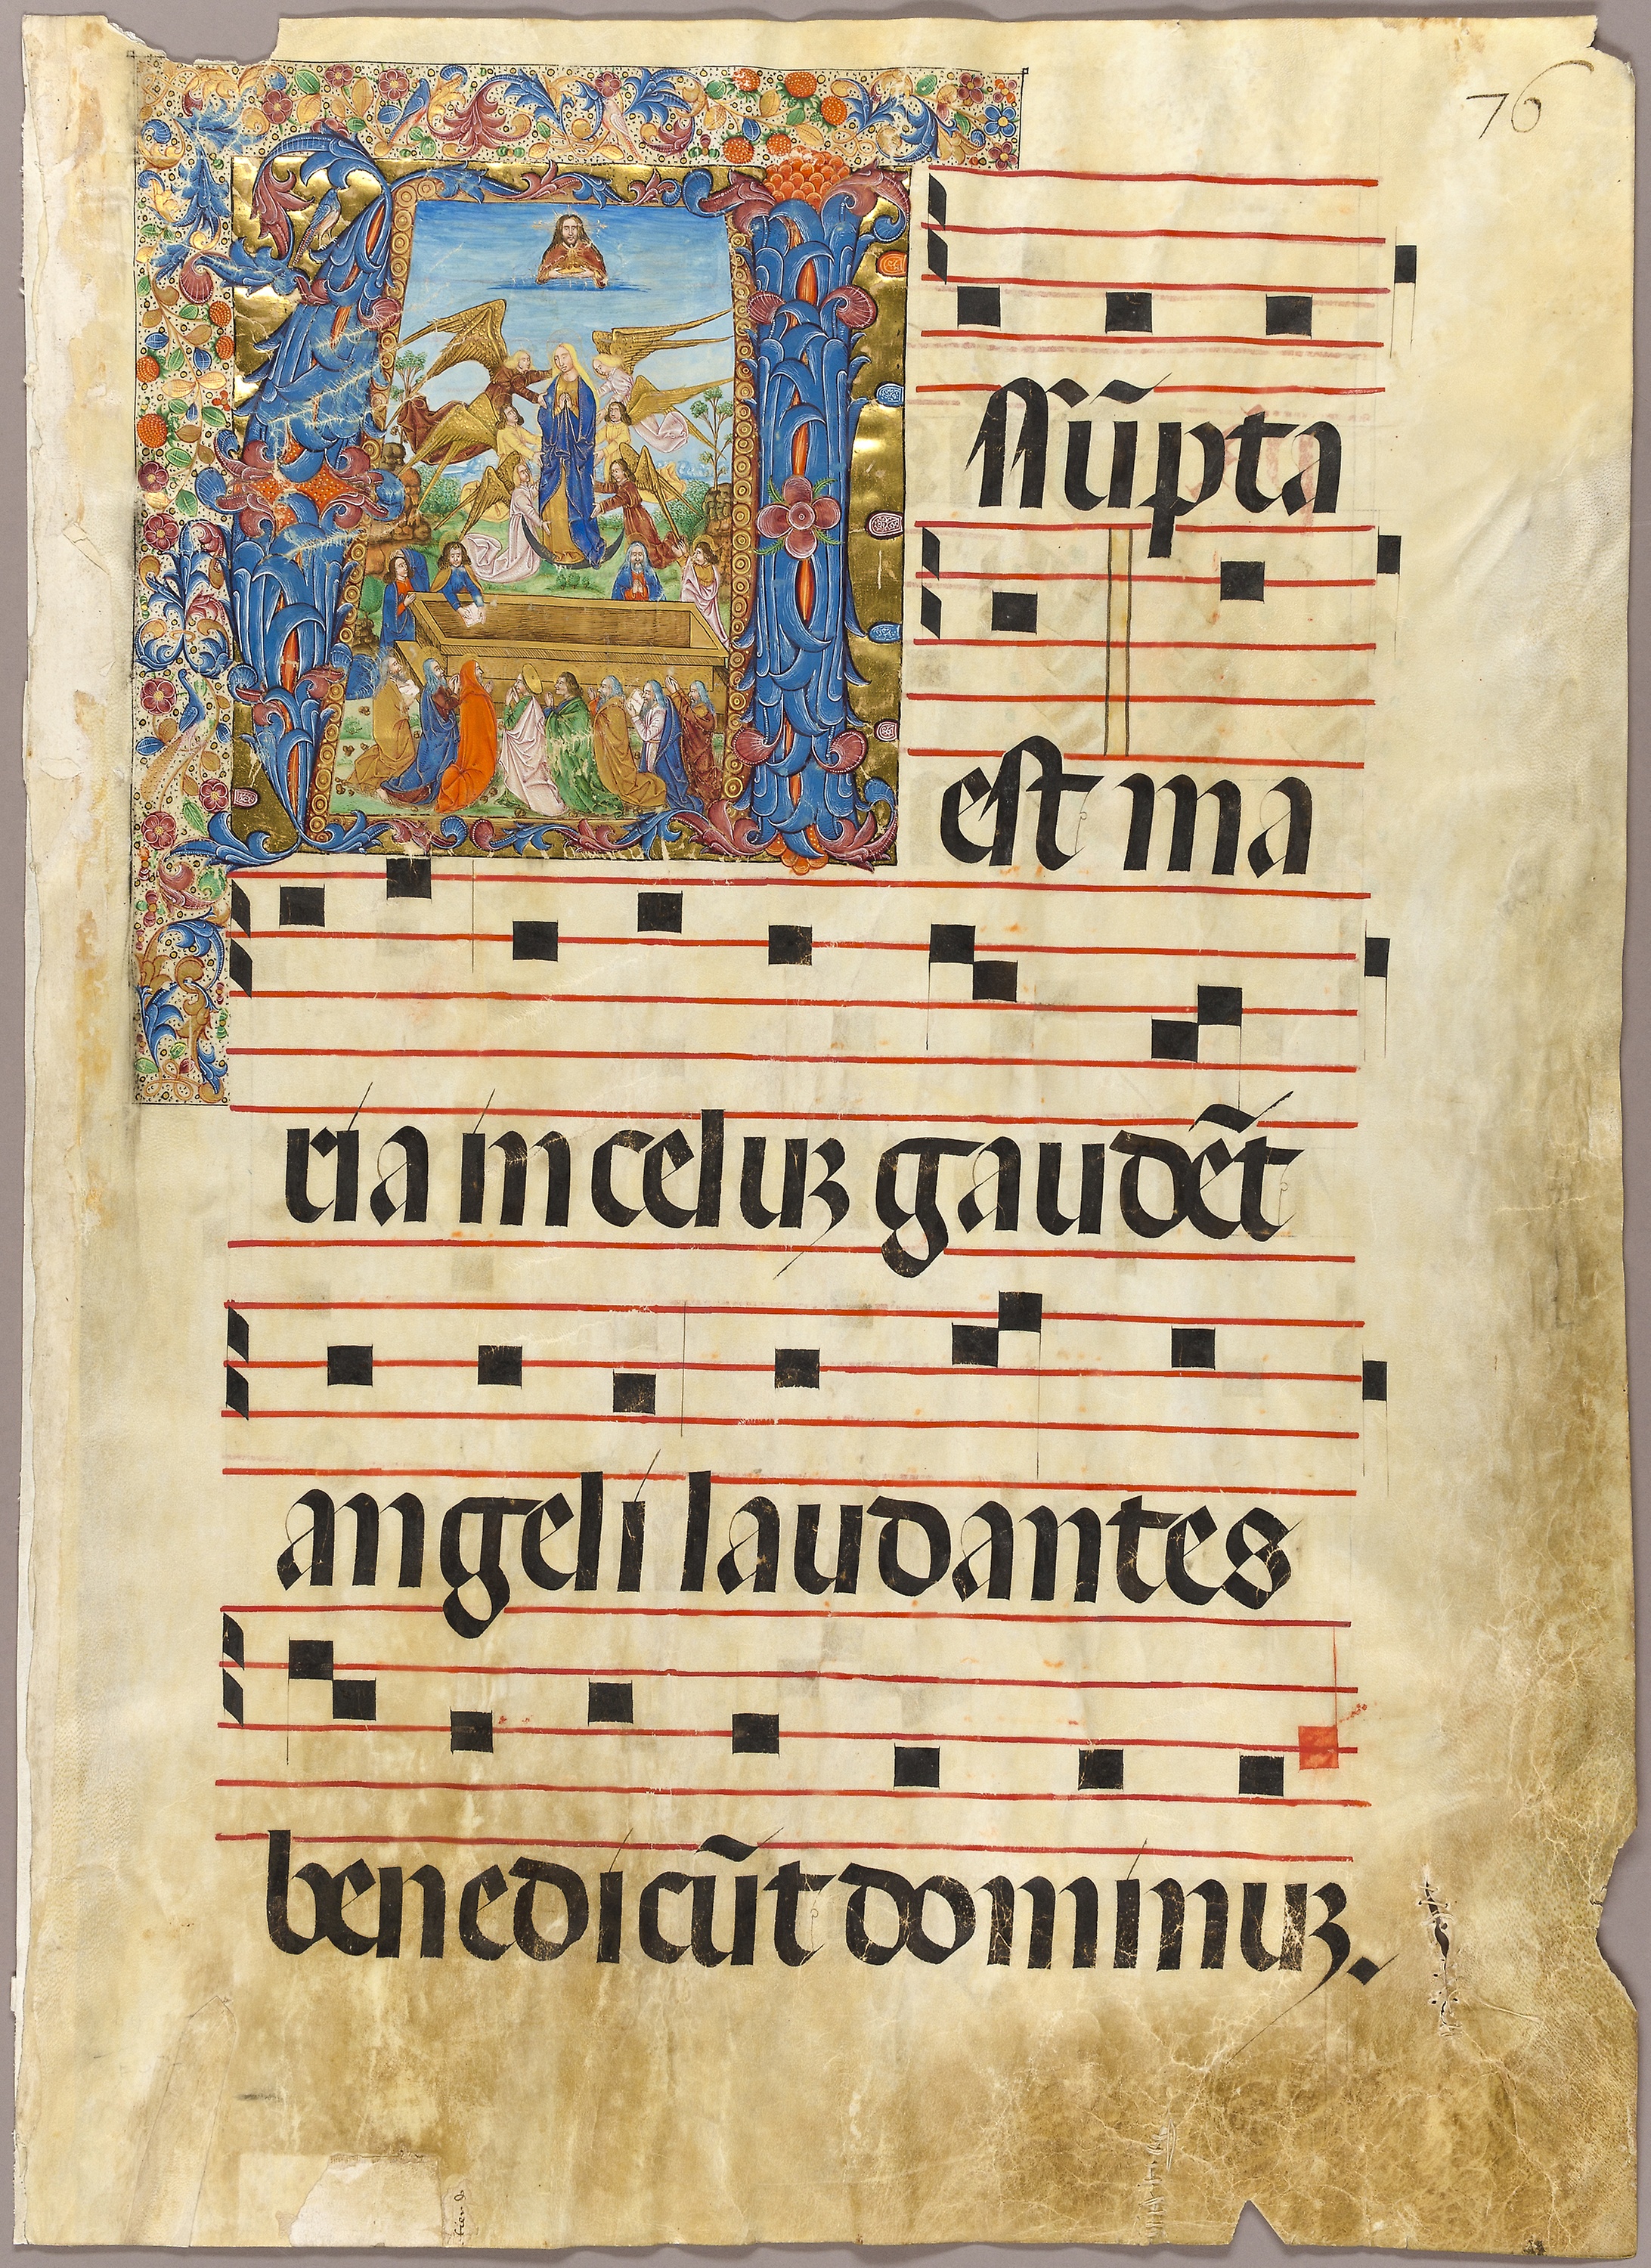 76
Assũpta
est ma
ria in celuꝫ gaudẽt
angeli laudantes
benedicũt dominuꝫ.